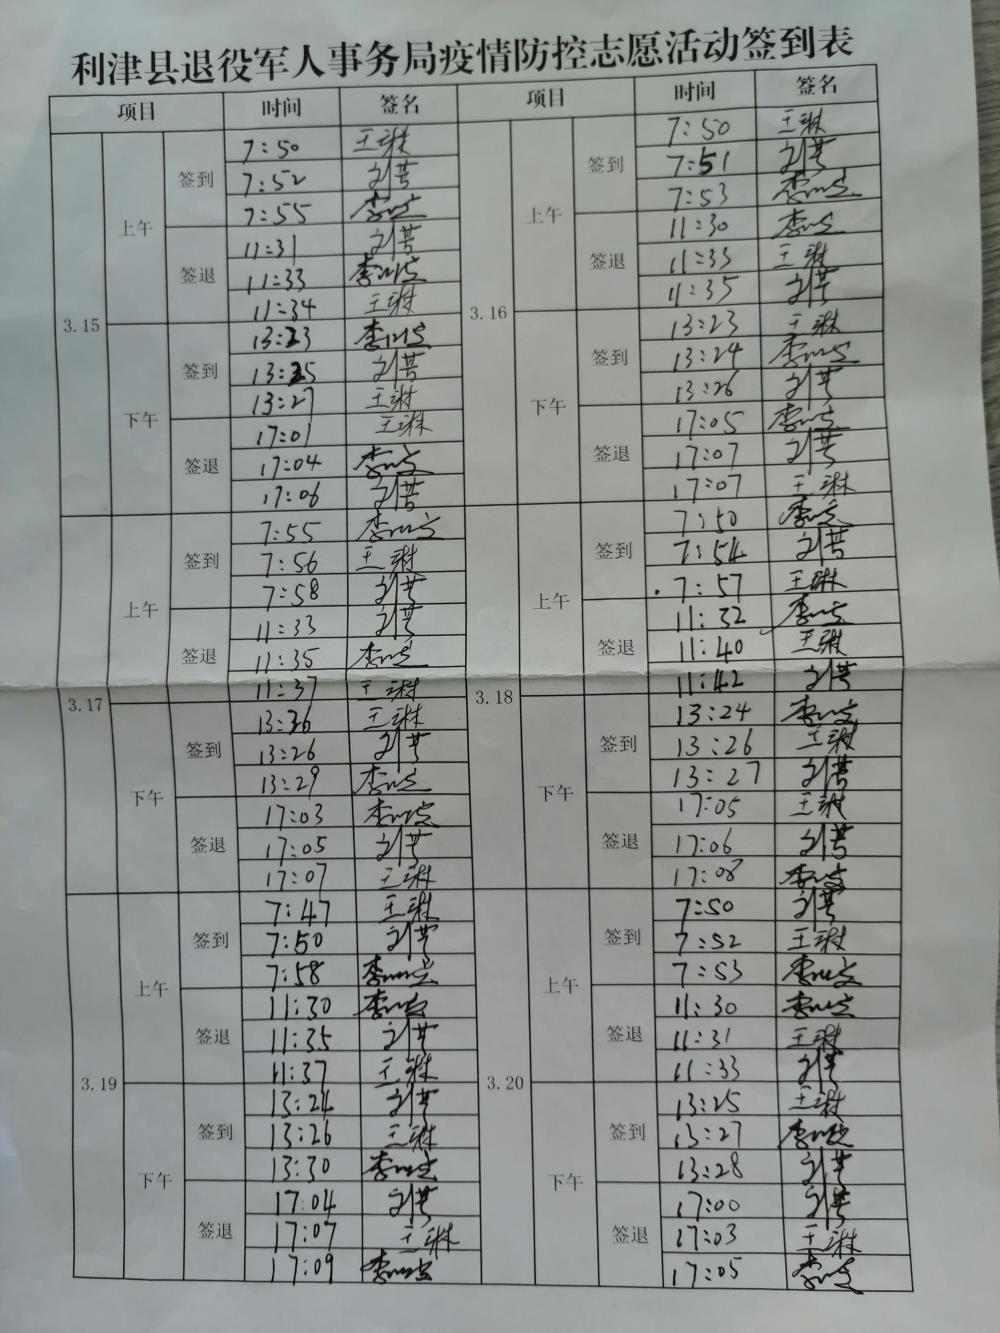 利津县退役军人事务局疫情防控志愿活动签到表
项目 时间 签名 项目 时间 签名
3.15
上午
签到
7:50 王琳
7:52 刘
7:55 李
签退
11:31 刘
11:33 李
11:34 王琳
下午
签到
13:23 李
13:25 刘
13:27 王琳
签退
17:01 王琳
17:04 李
17:06 刘
3.16
上午
签到
7:50 王琳
7:51 刘
7:53 李
签退
11:30 李
11:33 王琳
11:35 刘
下午
签到
13:23 王琳
13:24 李
13:26 刘
签退
17:05 李
17:07 刘
17:07 王琳
3.17
上午
签到
7:55 李
7:56 王琳
7:58 刘
签退
11:33 刘
11:35 李
11:37 王琳
下午
签到
13:26 王琳
13:26 刘
13:29 李
签退
17:03 李
17:05 刘
17:07 王琳
3.18
上午
签到
7:50 李
7:54 刘
7:57 王琳
签退
11:32 李
11:40 王琳
11:42 刘
下午
签到
13:24 李
13:26 王琳
13:27 刘
签退
17:05 王琳
17:06 刘
17:08 李
3.19
上午
签到
7:47 王琳
7:50 刘
7:58 李
签退
11:30 李
11:35 刘
11:37 王琳
下午
签到
13:24 刘
13:26 王琳
13:30 李
签退
17:04 刘
17:07 王琳
17:09 李
3.20
上午
签到
7:50 刘
7:52 王琳
7:53 李
签退
11:30 李
11:31 王琳
11:33 刘
下午
签到
13:25 王琳
13:27 李
13:28 刘
签退
17:00 刘
17:03 王琳
17:05 李